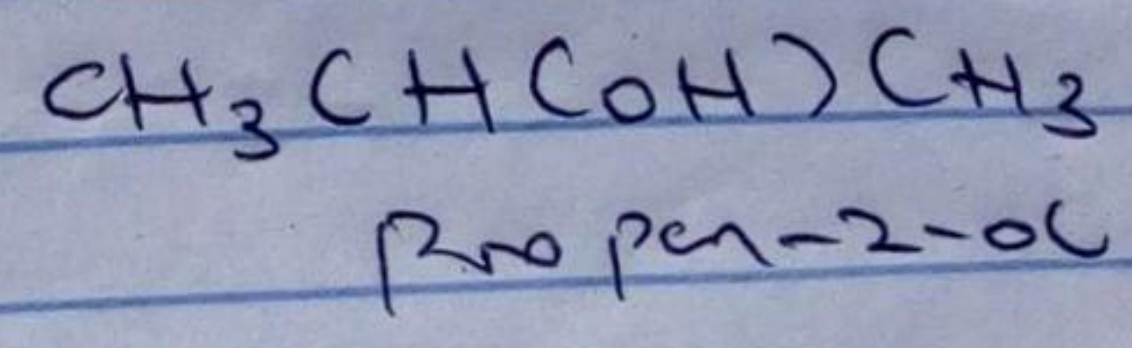 CH₃CH(OH)CH₃
propan-2-ol